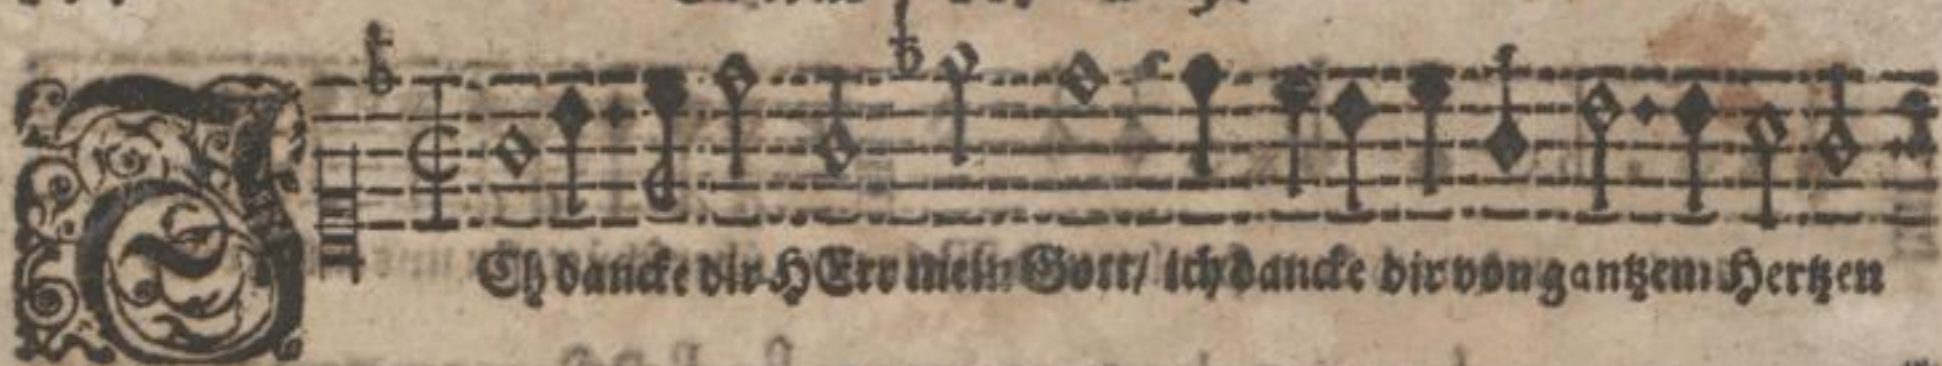 ICh dancke dir HErr mein Gott/ ich dancke dir von gantzem Hertzen